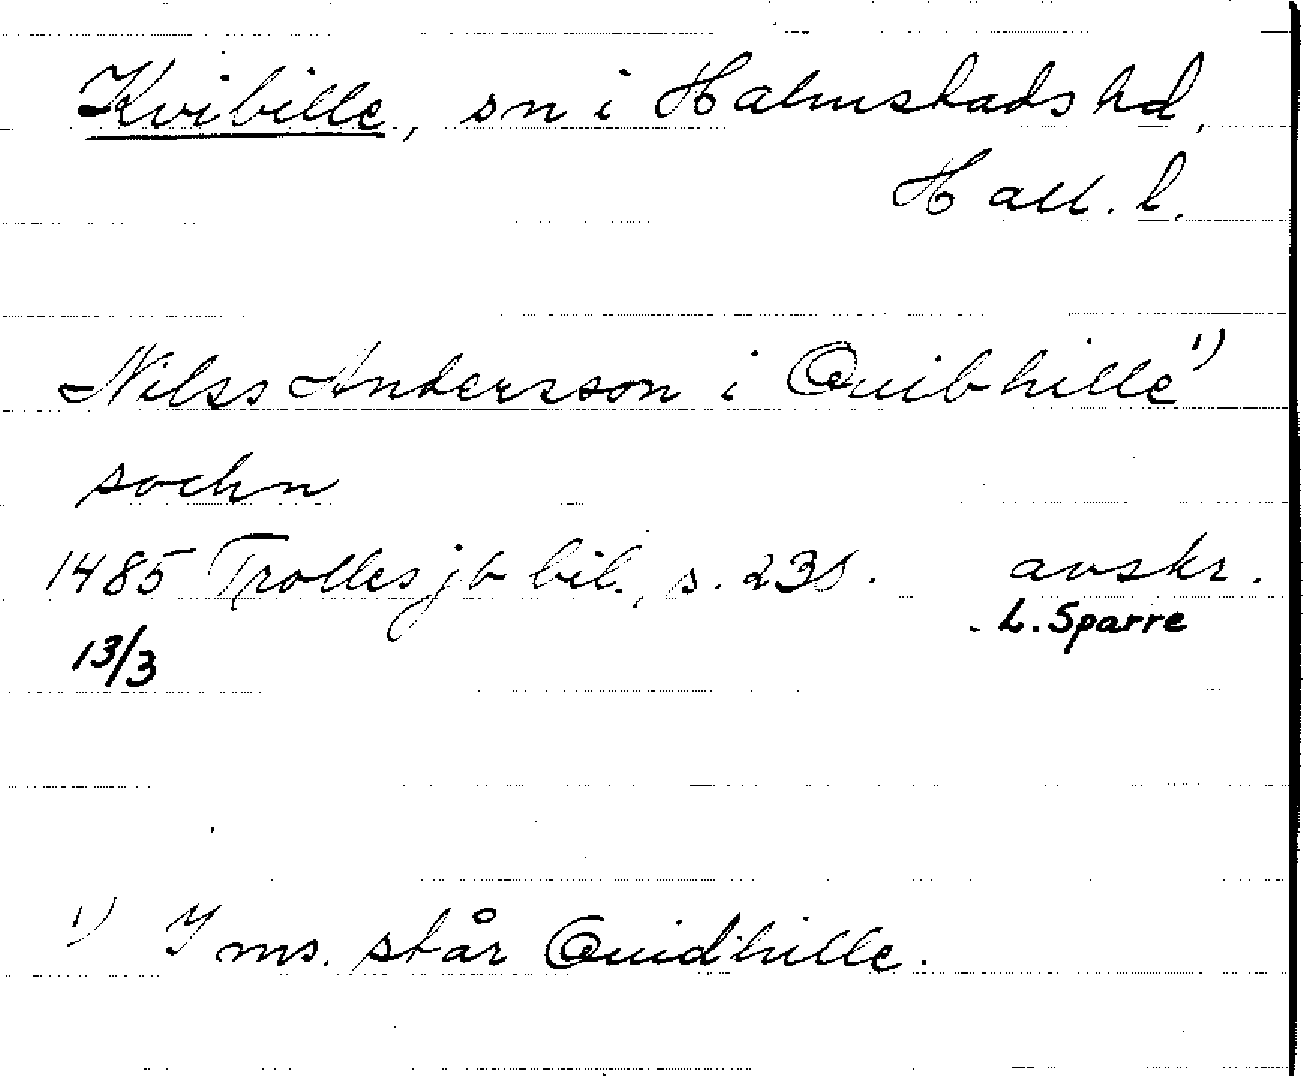 Kvibille, sn i Halmstads hd,
Hall. l.
Nilss Andersson i Quibhille 1)
sochn
1485 Trolles jb bil., s. 238. avskr.
13/3 L. Sparre
1) I ms. står Quidhille.